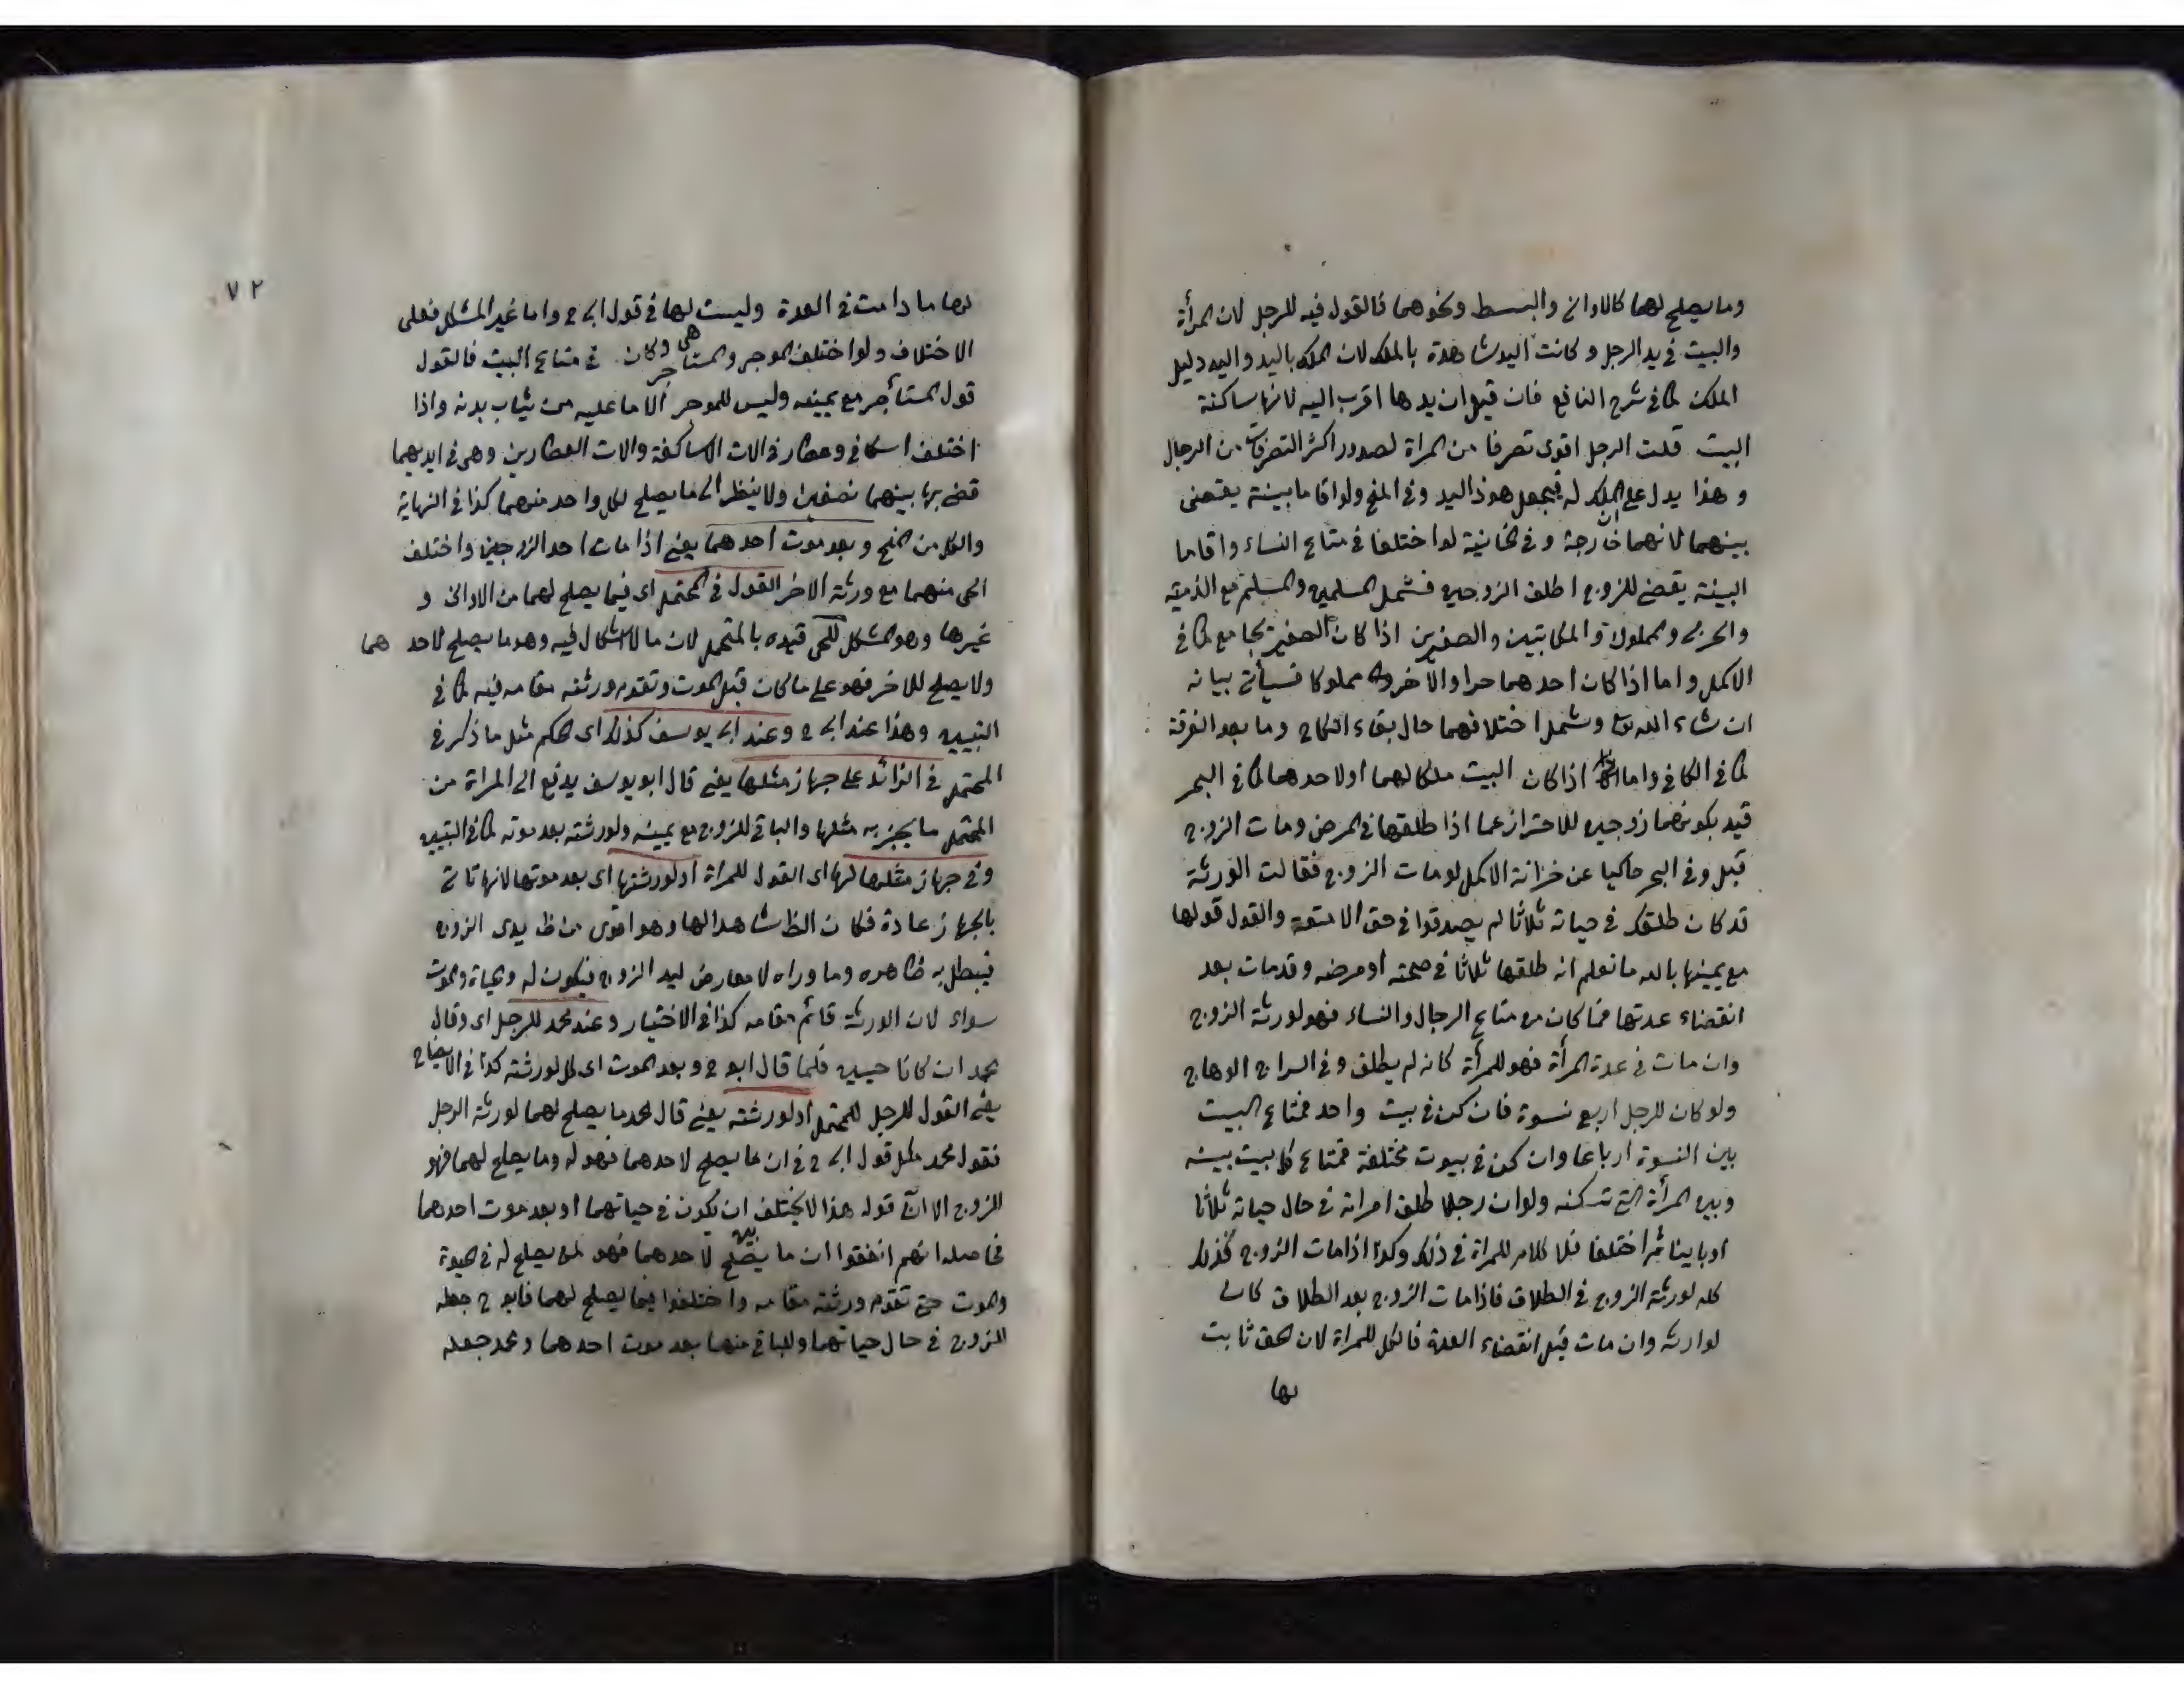 وما يصلح لهما كالاواني والبسط ونحوهما فالقول فيه للرجل لان المرأة
والبيت في يد الرجل وكانت اليد شاهدة بالملك لان الملك باليد واليد دليل
الملك كما في شرح النافع فان قيل ان يدها اقرب اليه لانها ساكنة
البيت قلت الرجل اقوى تصرفا من المراة لصدور اكثر التصرفات من الرجال
وهذا يدل على الملك له فيجعل هو ذا اليد وفي المنح ولو اقاما بينة يقضى
بينهما لانهما خارجة وفي الخانية لو اختلفا في متاع النساء واقاما
البينة يقضى للزوج اطلق الزوجين فشمل المسلمين والمسلم مع الذمية
والحربي والمملوك والمكاتبين والصغيرين اذا كان الصغير يجامع كما في
الاكمل واما اذا كان احدهما حرا والاخر مملوكا فسيأتي بيانه
ان شاء الله تع وشمل اختلافهما حال بقاء النكاح وما بعد الفرقة
كما في الكافي واما اذا كان البيت ملكا لهما او لاحدهما كما في البحر
قيد بكونهما زوجين للاحتراز عما اذا طلقها في المرض ومات الزوج
قبل وفي البحر حاكيا عن خزانة الاكمل لو مات الزوج فقالت الورثة
قد كان طلقك في حياته ثلاثا لم يصدقوا في حق الامتعة والقول قولها
مع يمينها بالله ما تعلم انه طلقها ثلاثا في صحته او مرضه وقد مات بعد
انقضاء عدتها فما كان من متاع الرجال والنساء فهو لورثة الزوج
وان مات في عدة المرأة فهو للمرأة كانه لم يطلق وفي السراج الوهاج
ولو كان للرجل اربع نسوة فان كن في بيت واحد فمتاع البيت
بين النسوة ارباعا وان كن في بيوت مختلفة فمتاع كل بيت بينه
وبين المرأة التي تسكنه ولو ان رجلا طلق امراته في حال حياته ثلاثا
او باينا ثم اختلفا فلا كلام للمراة في ذلك وكذا اذا مات الزوج فذلك
كله لورثة الزوج في الطلاق فاذا مات الزوج بعد الطلاق كان
لوارثه وان مات قبل انقضاء العدة فالكل للمراة لان الحق ثابت
لها
٧٢
لها ما دامت في العدة وليست لها في قول ابي ح واما غير المشكل فعلى
الاختلاف ولو اختلف الموجر والمستاجر في متاع البيت فالقول
هي وكان
قول المستأجر مع يمينه وليس للموجر الا ما عليه من ثياب بدنه واذا
اختلف اسكافي وعطار في الات الاساكفة والات العطارين وهي في ايديهما
قضي بها بينهما نصفين ولا ينظر الى ما يصلح لكل واحد منهما كذا في النهاية
والكل من المنح وبعد موت احدهما يعني اذا مات احد الزوجين واختلف
الحي منهما مع ورثة الاخر القول في المحتمل اي فيما يصلح لهما من الاواني و
غيرها وهو المشكل للحي قيده بالمحتمل لان ما لا اشكال فيه وهو ما يصلح لاحد هما
ولا يصلح للاخر فهو على ما كان قبل الموت وتقوم ورثته مقامه فيه كما في
التبيين وهذا عند ابي ح وعند ابي يوسف كذلك اي الحكم مثل ما ذكر في
المحتمل في الزائد على جهاز مثلها يعني قال ابو يوسف يدفع الى المراة من
المحتمل ما يجهز به مثلها والباقي للزوج مع يمينه ولورثته بعد موته كما في التبيين
وفي جهاز مثلها لها اي القول للمراة او لورثتها اي بعد موتها لانها تأتي
بالجهاز عادة فكان الظ شاهدا لها وهو اقوى من ظ يدي الزوج
فيبطل به ظاهره وما وراه لا معارض ليد الزوج فيكون له والحياة والموت
سواء لان الورثة قائم مقامه كذا في الاختيار وعند محمد للرجل اي وقال
محمد ان كانا حيين فكما قال ابو ح وبعد الموت اي كل لورثته كذا في الايضاح
يعني القول للرجل للمحتمل او لورثته يعني قال محمد ما يصلح لهما لورثة الرجل
فقول محمد مثل قول ابي ح في ان ما يصلح لاحدهما فهو له وما يصلح لهما فهو
للزوج الا ان قوله هذا لا يختلف ان يكون في حياتهما او بعد موت احدهما
فحاصله انهم اتفقوا ان ما يصلح لاحدهما فهو لمن يصلح له في الحيوة
والموت حتى تقوم ورثته مقامه واختلفوا فيما يصلح لهما فابو ح جعله
للزوج في حال حياتهما وللباقي منهما بعد موت احدهما ومحمد جعله